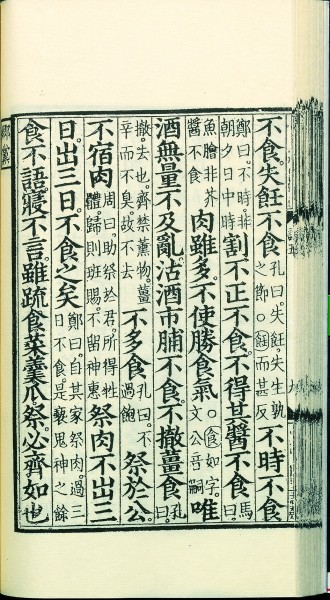 不食。失飪不食孔曰。失飪。失生孰之節。○飪而甚反不時不食
鄭曰。不時。非朝夕日中時割不正不食。不得其醬不食。馬曰。
魚膾非芥醬不食肉雖多。不使勝食氣○食如字。文公音嗣唯
酒無量。不及亂。沽酒市脯不食。不撤薑食。孔曰。
撤。去也。齊禁薰物。薑辛而不臭。故不去不多食孔曰。不過飽祭於公。
不宿肉周曰。助祭於君。所得牲體。歸則班賜。不留神惠祭肉不出三
日。出三日。不食之矣鄭曰。自其家祭肉。過三日不食。是褻鬼神之餘
食不語。寢不言。雖疏食菜羹瓜祭。必齊如也